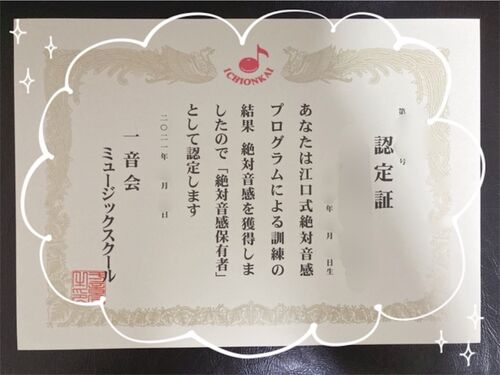 ICHIONKAI
第　号
認定証
年　月　日生
あなたは江口式絶対音感
プログラムによる訓練の
結果 絶対音感を獲得しま
したので「絶対音感保有者」
として認定します
二〇二一年　月　日
一音会
ミュージックスクール